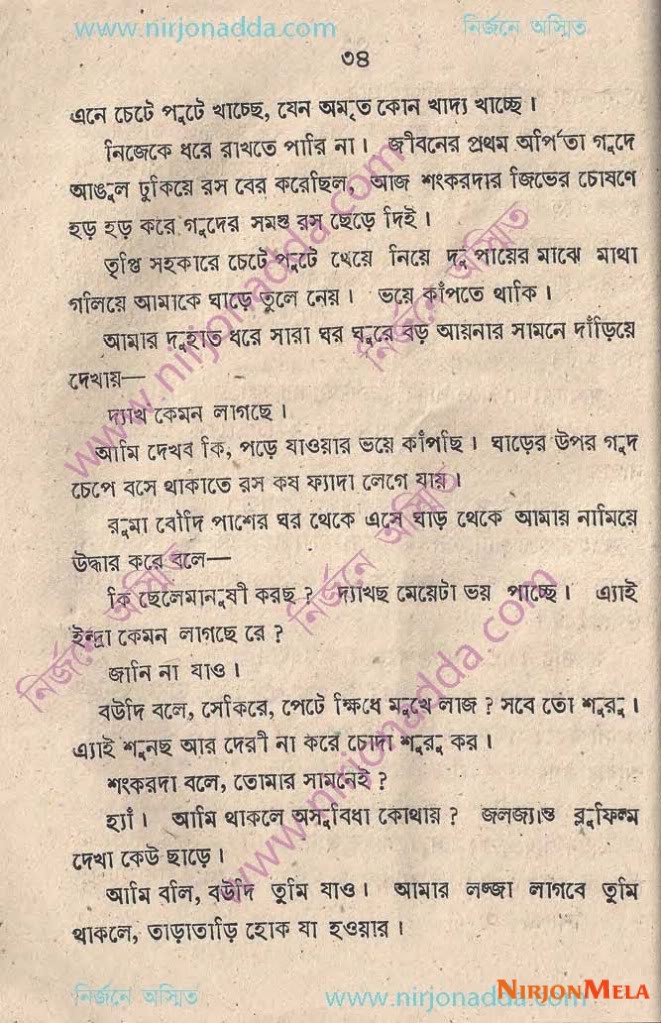 www.nirjonadda.com নির্জনে অস্মিত
৩৪
এনে চেটে পুটে খাচ্ছে, যেন অমৃত কোন খাদ্য খাচ্ছে।
নিজেকে ধরে রাখতে পারি না। জীবনের প্রথম অর্পিতা গুদে
আঙুল ঢুকিয়ে রস বের করেছিল, আজ শংকরদার জিভের চোষণে
হড় হড় করে গুদের সমস্ত রস ছেড়ে দিই।
তৃপ্তি সহকারে চেটে পুটে খেয়ে নিয়ে দু পায়ের মাঝে মাথা
গলিয়ে আমাকে ঘাড়ে তুলে নেয়। ভয়ে কাঁপতে থাকি।
আমার দুহাত ধরে সারা ঘর ঘুরে বড় আয়নার সামনে দাঁড়িয়ে
দেখায়—
দ্যাখ কেমন লাগছে।
আমি দেখব কি, পড়ে যাওয়ার ভয়ে কাঁপছি। ঘাড়ের উপর গুদ
চেপে বসে থাকাতে রস কষ ফ্যাদা লেগে যায়।
রুমা বৌদি পাশের ঘর থেকে এসে ঘাড় থেকে আমায় নামিয়ে
উদ্ধার করে বলে—
কি ছেলেমানুষী করছ? দ্যাখছ মেয়েটা ভয় পাচ্ছে। এ্যাই
ইন্দ্রা কেমন লাগছে রে?
জানি না যাও।
বউদি বলে, সেকিরে, পেটে ক্ষিধে মুখে লাজ? সবে তো শুরু।
এ্যাই শুনছ আর দেরী না করে চোদা শুরু কর।
শংকরদা বলে, তোমার সামনেই?
হ্যাঁ। আমি থাকলে অসুবিধা কোথায়? জলজ্যান্ত ব্লুফিল্ম
দেখা কেউ ছাড়ে।
আমি বলি, বউদি তুমি যাও। আমার লজ্জা লাগবে তুমি
থাকলে, তাড়াতাড়ি হোক যা হওয়ার।
নির্জনে অস্মিত www.nirjonadda.com
NIRJONMELA
www.nirjonadda.com
নির্জনে অস্মিত
নির্জনে অস্মিত
নির্জনে অস্মিত
www.nirjonadda.com